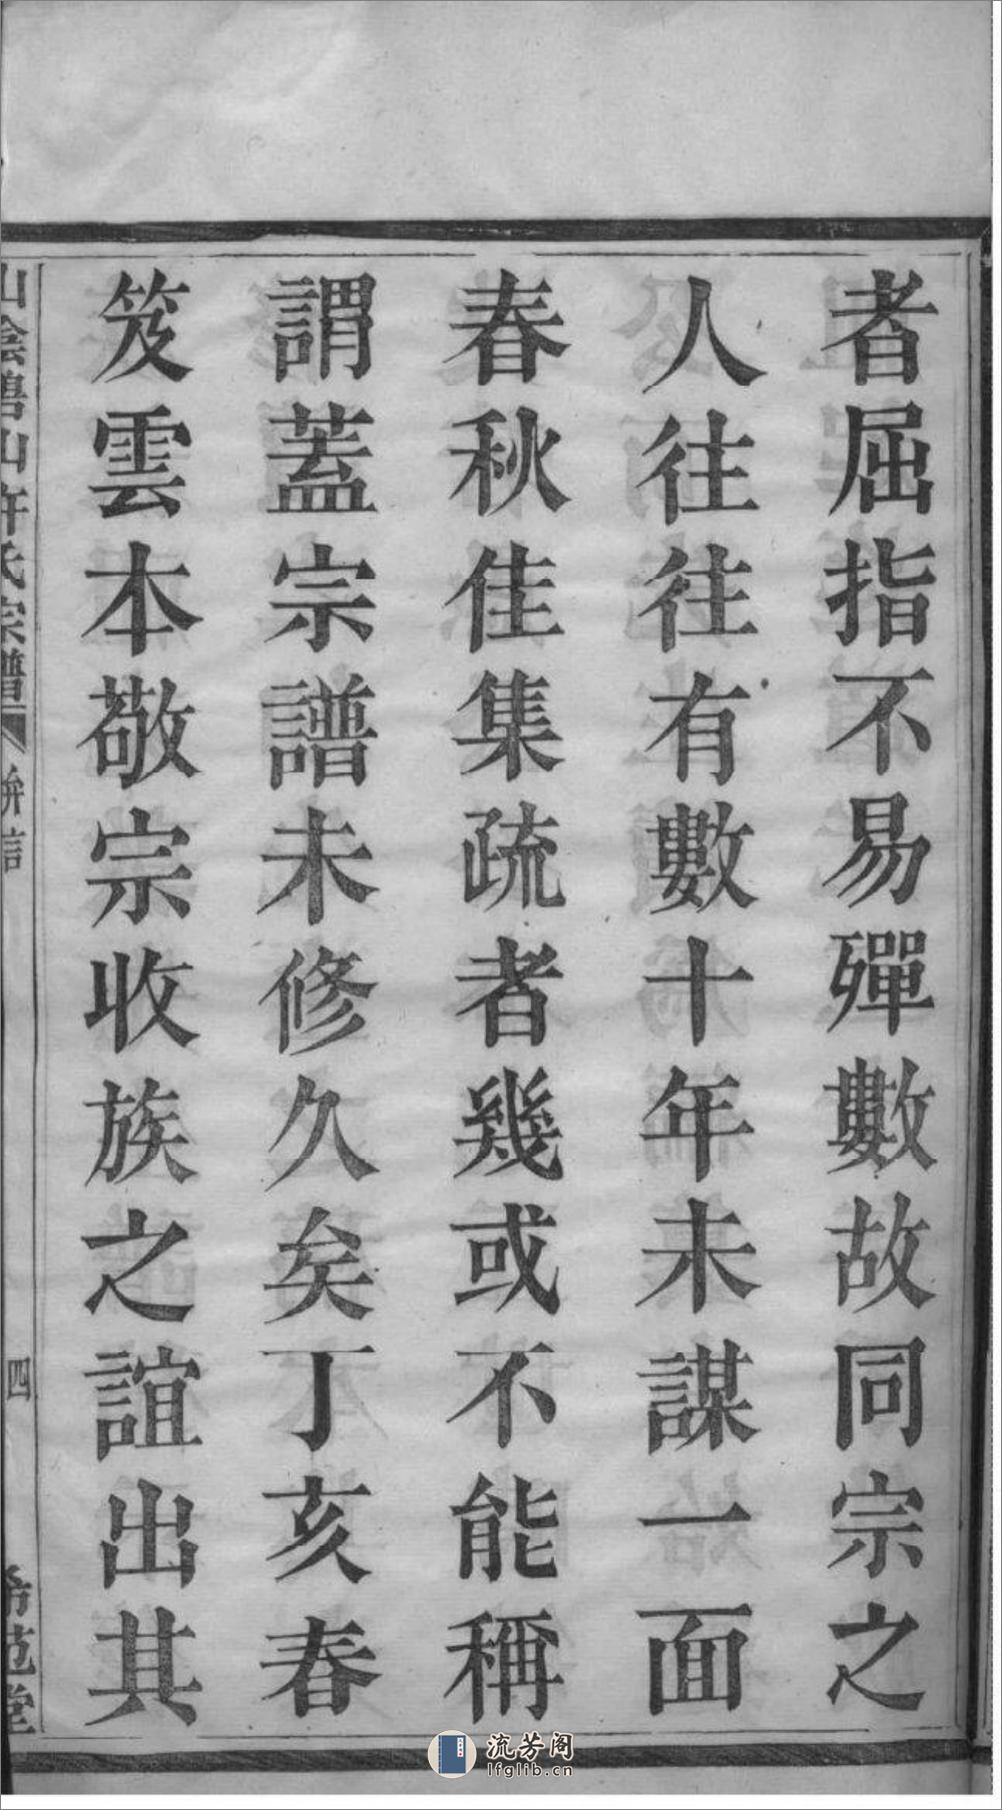 者屈指不易殫數故同宗之
人往往有數十年未謀一面
春秋佳集疏者幾或不能稱
謂蓋宗譜未修久矣丁亥春
笈雲本敬宗收族之誼出其
山陰碧山許氏宗譜
四
希范堂
流芳阁
lfglib.cn